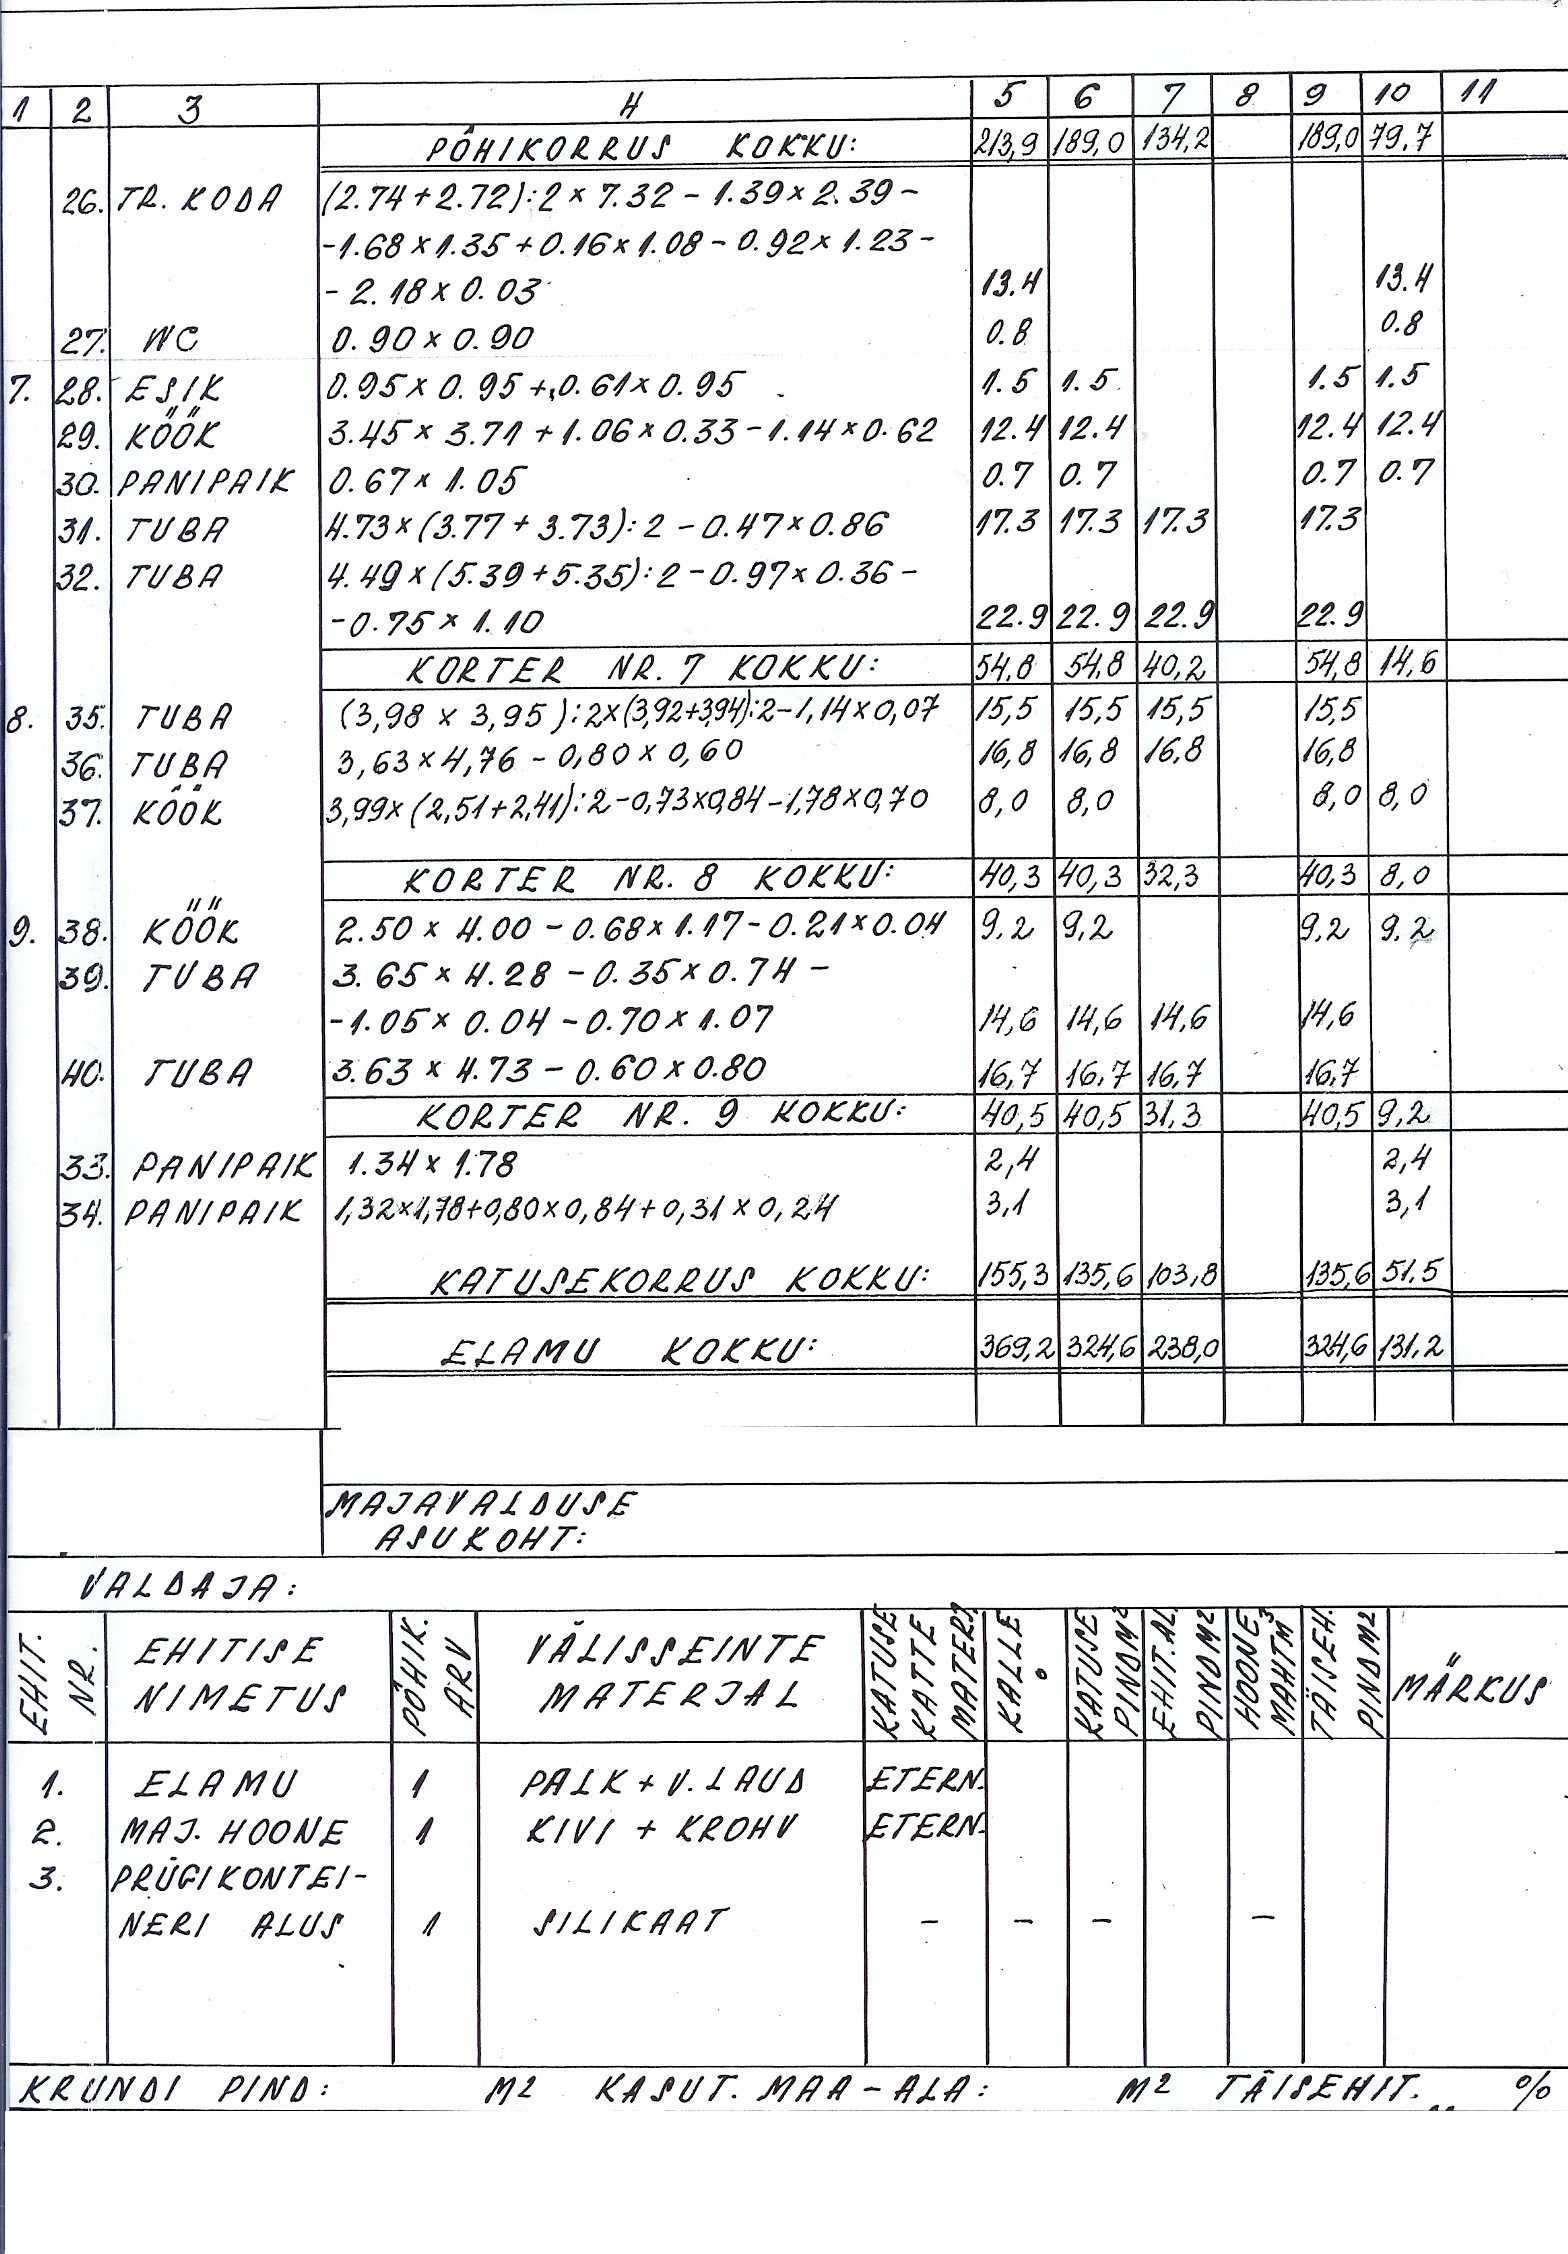 1 2 3 4 5 6 7 8 9 10 11
PÕHIKORRUS KOKKU: 213,9 189,0 134,2 189,0 79,7
26. TR. KODA (2.74+2.72):2 × 7.32 - 1.39 × 2.39 -
-1.68 × 1.35 + 0.16 × 1.08 - 0.92 × 1.23 -
- 2.18 × 0.03 13.4 13.4
27. WC 0.90 × 0.90 0.8 0.8
7. 28. ESIK 0.95 × 0.95 + 0.61 × 0.95 1.5 1.5 1.5 1.5
29. KÖÖK 3.45 × 3.71 + 1.06 × 0.33 - 1.14 × 0.62 12.4 12.4 12.4 12.4
30. PANIPAIK 0.67 × 1.05 0.7 0.7 0.7 0.7
31. TUBA 4.73 × (3.77 + 3.73):2 - 0.47 × 0.86 17.3 17.3 17.3 17.3
32. TUBA 4.49 × (5.39 + 5.35):2 - 0.97 × 0.36 -
-0.75 × 1.10 22.9 22.9 22.9 22.9
KORTER NR. 7 KOKKU: 54,8 54,8 40,2 54,8 14,6
8. 35. TUBA (3,98 × 3,95):2×(3,92+3,94):2-1,14×0,07 15,5 15,5 15,5 15,5
36. TUBA 3,63 × 4,76 - 0,80 × 0,60 16,8 16,8 16,8 16,8
37. KÖÖK 3,99×(2,51+2,41):2-0,73×0,84-1,78×0,70 8,0 8,0 8,0 8,0
KORTER NR. 8 KOKKU: 40,3 40,3 32,3 40,3 8,0
9. 38. KÖÖK 2.50 × 4.00 - 0.68 × 1.17 - 0.21 × 0.04 9,2 9,2 9,2 9,2
39. TUBA 3.65 × 4.28 - 0.35 × 0.74 -
-1.05 × 0.04 - 0.70 × 1.07 14,6 14,6 14,6 14,6
40. TUBA 3.63 × 4.73 - 0.60 × 0.80 16,7 16,7 16,7 16,7
KORTER NR. 9 KOKKU: 40,5 40,5 31,3 40,5 9,2
33. PANIPAIK 1.34 × 1.78 2,4 2,4
34. PANIPAIK 1,32×1,78+0,80×0,84+0,31×0,24 3,1 3,1
KATUSEKORRUS KOKKU: 155,3 135,6 103,8 135,6 51,5
ELAMU KOKKU: 369,2 324,6 238,0 324,6 131,2
MAJAVALDUSE
ASUKOHT:
VALDAJA:
EHIT. NR.
EHITISE
NIMETUS
PÕHIK. ARV
VÄLISSEINTE
MATERJAL
KATUSE KATTE MATERJ.
KALLE °
KATUSE PIND M²
EHIT.AL. PIND M²
HOONE MAHT M³
TÄISEH. PIND M²
MÄRKUS
1. ELAMU 1 PALK + V.LAUD ETERN.
2. MAJ. HOONE 1 KIVI + KROHV ETERN.
3. PRÜGIKONTEI-
NERI ALUS 1 SILIKAAT - - - -
KRUNDI PIND: M² KASUT. MAA-ALA: M² TÄISEHIT. %